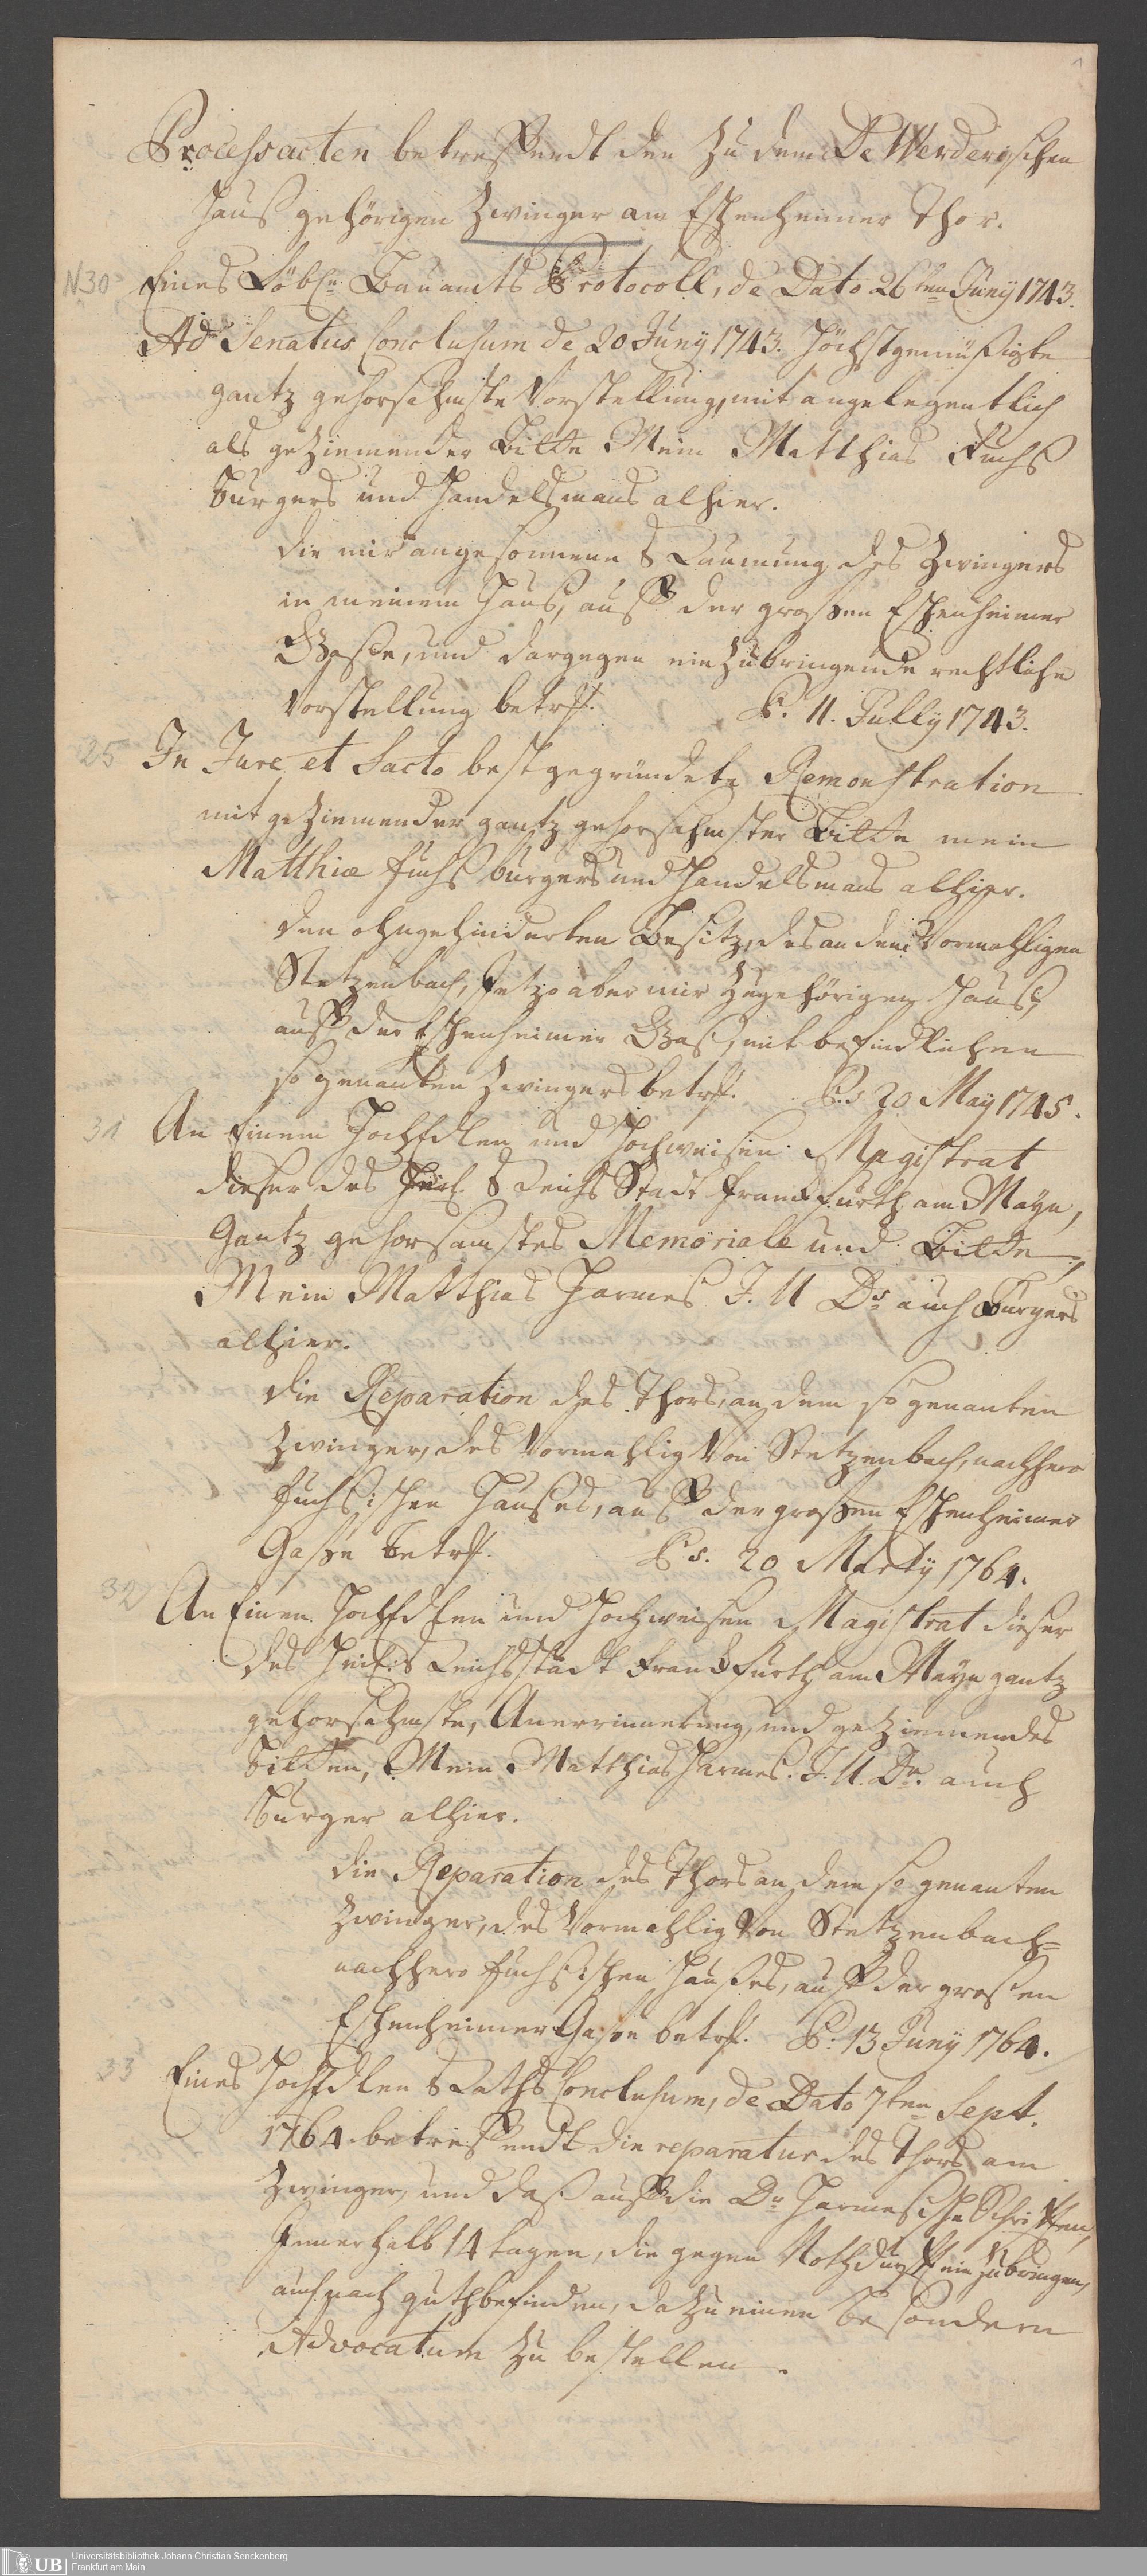 1
Processacten betreffendt den zu dem De Werderischen
Hauß gehörigen Zwinger am Eschenheimer Thor.
N 30 Eines Löbl. Bauamts Protocoll, de Dato 26ten Juny 1743.
Ad Senatus Conclusum de 20 Juny 1743. Höchstgemüßigte
gantz gehorsahmste Vorstellung, mit angelegentlich
als geziemender Bitte Mein Matthias Fuchß
burgers und Handelsmans alhier.
die mir angesonnene Raumung des Zwingers
in meinem Hauß, auff der großen Eschenheimer
Gasse, und dargegen einzubringende rechtliche
Vorstellung betrff. Ps. 11. Jully 1743.
25 In Jure et Facto bestgegründete Remonstration
mit geziemender gantz gehorsahmster Bitte mein
Matthiæ Fuchß burgers und Handelsmans alhier.
den ohngehinderten Besitz, des an dem Vormahligen
Stetzenbach, Jetzo aber mir zugehörigen Hauß,
auff der Eschenheimer Gaß, mit befindlichen
so genanten Zwingers betrff. Ps. 20 May 1745.
31 An Einem HochEdlen und Hochweisen Magistrat
dieser des Heil. Reichs Stadt Franckfurth am Mayn,
Gantz gehorsamstes Memoriale und Bitte,
Mein Matthias Harmes J. U Drs. auch Burgers
alhier.
die Reparation des Thors, an dem so genanten
Zwinger, des Vormahlig Von Stetzenbach, nachhero
Fuchsischen Haußes, auff der großen Eschenheimer
Gaße betrff. Ps. 20 Marty 1764.
32 An Einen HochEdlen und Hochweisen Magistrat dieser
des Heil. Reichsstadt Franckfurth am Mayn gantz
gehorsahmste, Anerrinnerung, und geziemendes
Bitten, Mein Matthias Harmes. J. U. Dr. auch
burger alhier.
die Reparation des Thors an dem so genanten
Zwinger, des Vormahlig Von Stetzenbach=
nachhero Fuchsischen Haußes, auff der großen
Eschenheimer Gasse betrff. Ps. 13 Juny 1764.
33 Eines HochEdlen Raths Conclusum, de Dato 7ten Sept.
1764. betreffendt die reparatur des Thors am
Zwinger, und daß auff die Dr. Harmesische Schrifften,
Innerhalb 14 tagen, die gegen Nothdurfft einzubringen,
auch nach guthbefinden, dazu einen besondern
Advocatum zu bestellen.
UB
Universitätsbibliothek Johann Christian Senckenberg
Frankfurt am Main